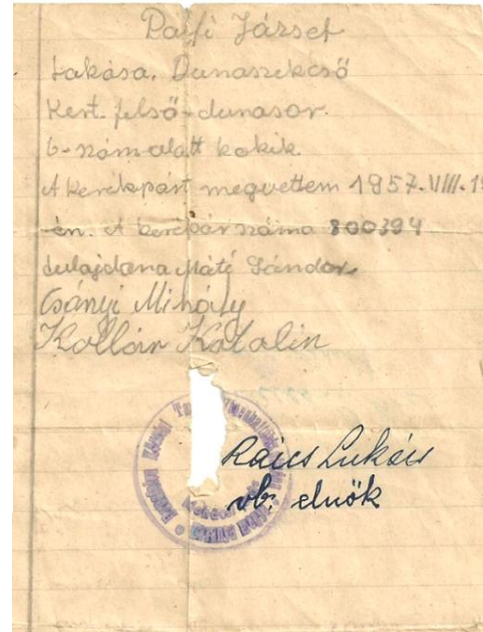 Pálfi József
Lakása. Dunaszekcső
Kert. felső-dunasor.
6-szám alatt lakik.
A kerékpárt megvettem 1957. VIII. 1
én. A kerékpár száma 800394
tulajdona Máté Sándor
Csányi Mihály
Kollár Katalin
Ráics Lukács
vb. elnök